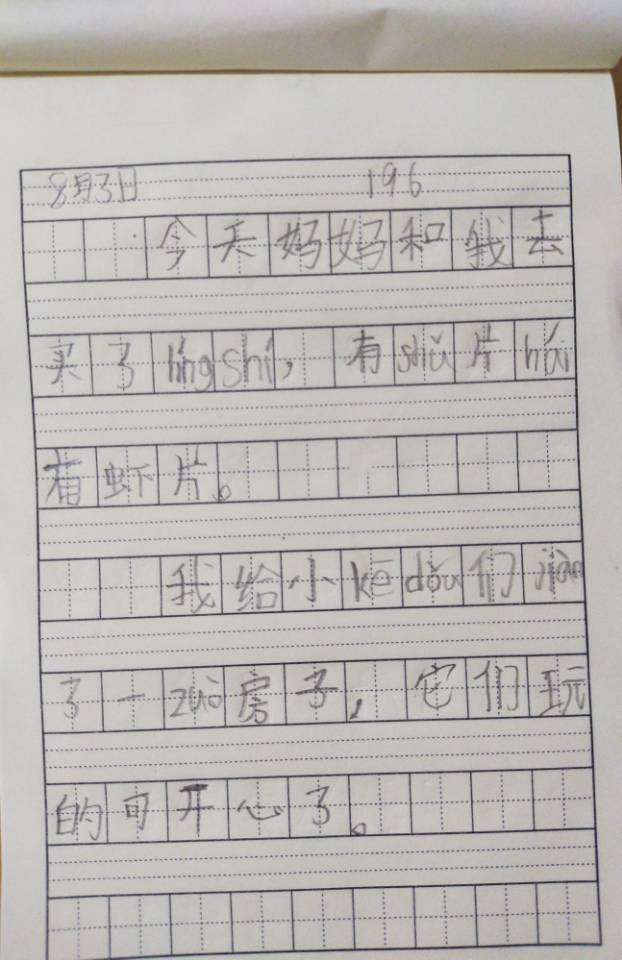 8月3日 196
今天妈妈和我去
买了líng shí，有shǔ片hái
有虾片。
我给小kē dǒu们jiàn
了一zuò房子，它们玩
的可开心了。